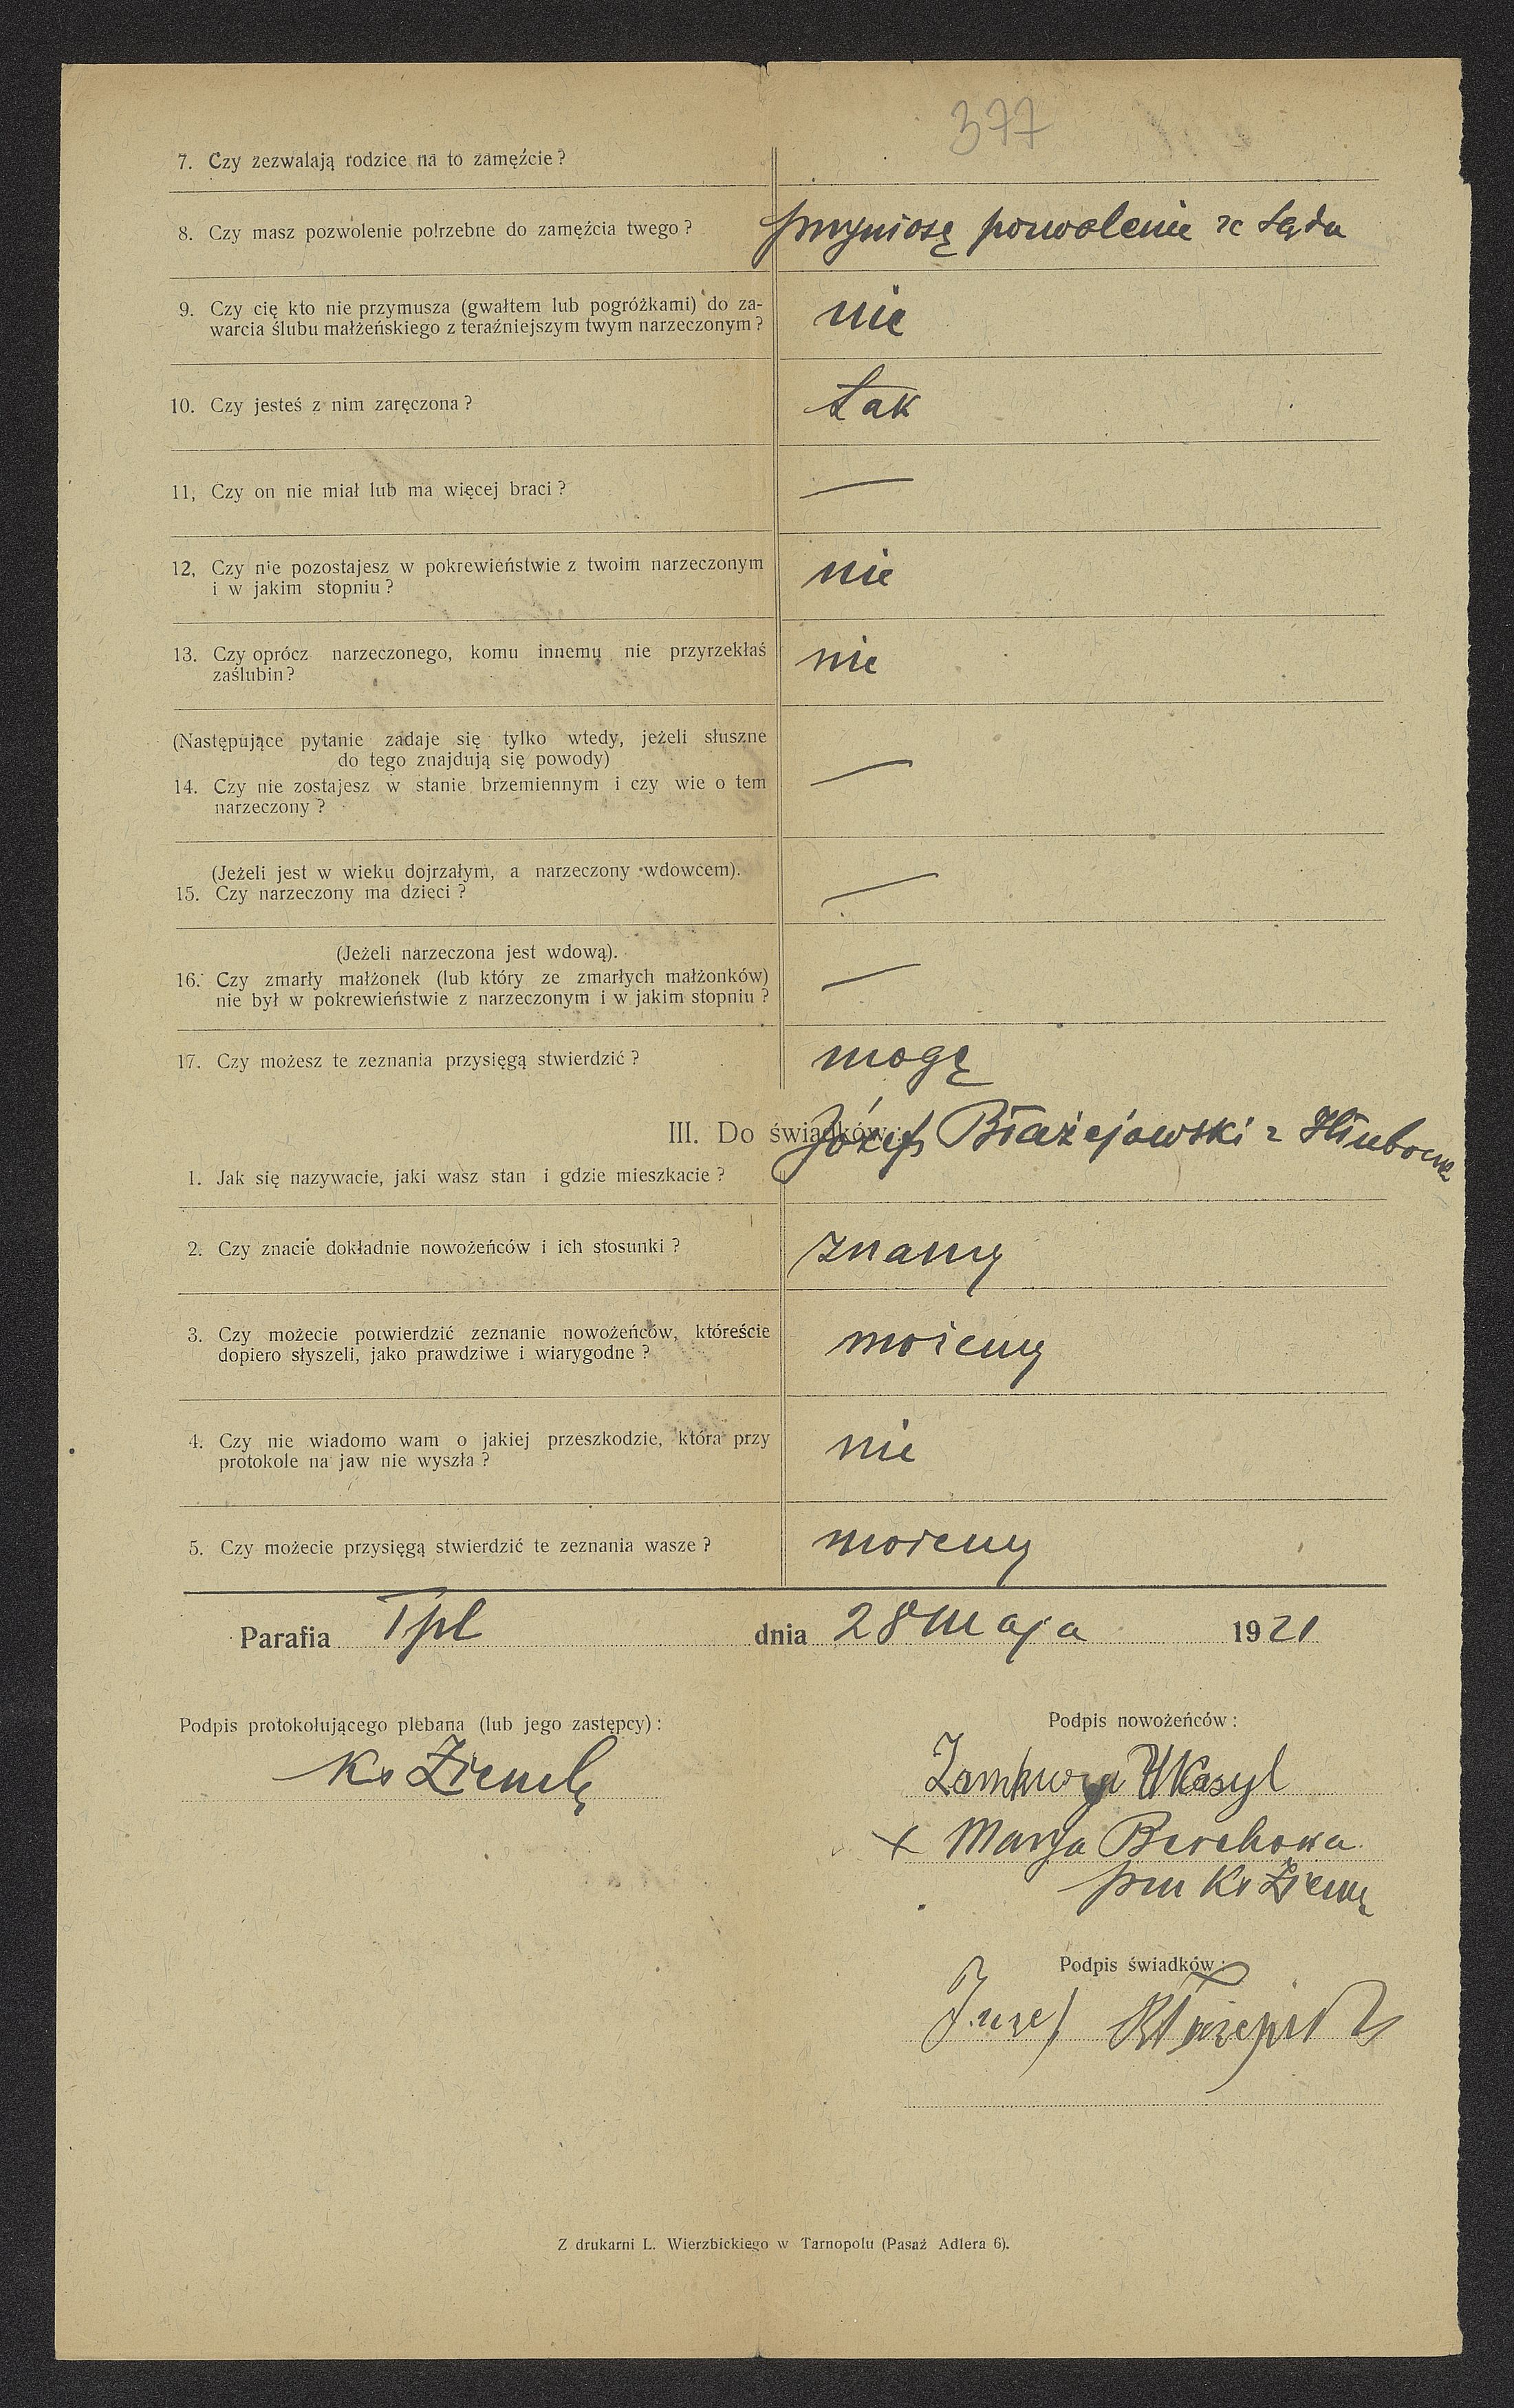 377
7. Czy zezwalają rodzice na to zamęźcie?
8. Czy masz pozwolenie potrzebne do zamęźcia twego? przyniosę pozwolenie ze Sądu
9. Czy cię kto nie przymusza (gwałtem lub pogróżkami) do za-
warcia ślubu małżeńskiego z teraźniejszym twym narzeczonym? nie
10. Czy jesteś z nim zaręczona? tak
11, Czy on nie miał lub ma więcej braci? —
12, Czy nie pozostajesz w pokrewieństwie z twoim narzeczonym
i w jakim stopniu? nie
13. Czy oprócz narzeczonego, komu innemu nie przyrzekłaś
zaślubin? nie
(Następujące pytanie zadaje się tylko wtedy, jeżeli słuszne
do tego znajdują się powody)
14. Czy nie zostajesz w stanie brzemiennym i czy wie o tem
narzeczony? —
(Jeżeli jest w wieku dojrzałym, a narzeczony wdowcem).
15. Czy narzeczony ma dzieci? —
(Jeżeli narzeczona jest wdową).
16. Czy zmarły małżonek (lub który ze zmarłych małżonków)
nie był w pokrewieństwie z narzeczonym i w jakim stopniu? —
17. Czy możesz te zeznania przysięgą stwierdzić? mogę
III. Do świadków:
Józef Błażejowski z
1. Jak się nazywacie, jaki wasz stan i gdzie mieszkacie?
2. Czy znacie dokładnie nowożeńców i ich stosunki? znamy
3. Czy możecie potwierdzić zeznanie nowożeńców, któreście
dopiero słyszeli, jako prawdziwe i wiarygodne? możemy
4. Czy nie wiadomo wam o jakiej przeszkodzie, która przy
protokole na jaw nie wyszła? nie
5. Czy możecie przysięgą stwierdzić te zeznania wasze? możemy
Parafia Tpl dnia 28 Maja 1921
Podpis protokołującego plebana (lub jego zastępcy):
Podpis nowożeńców:
Ks
Wasyl
x Marya
Ks
Podpis świadków:
Z drukarni L. Wierzbickiego w Tarnopolu (Pasaż Adlera 6).